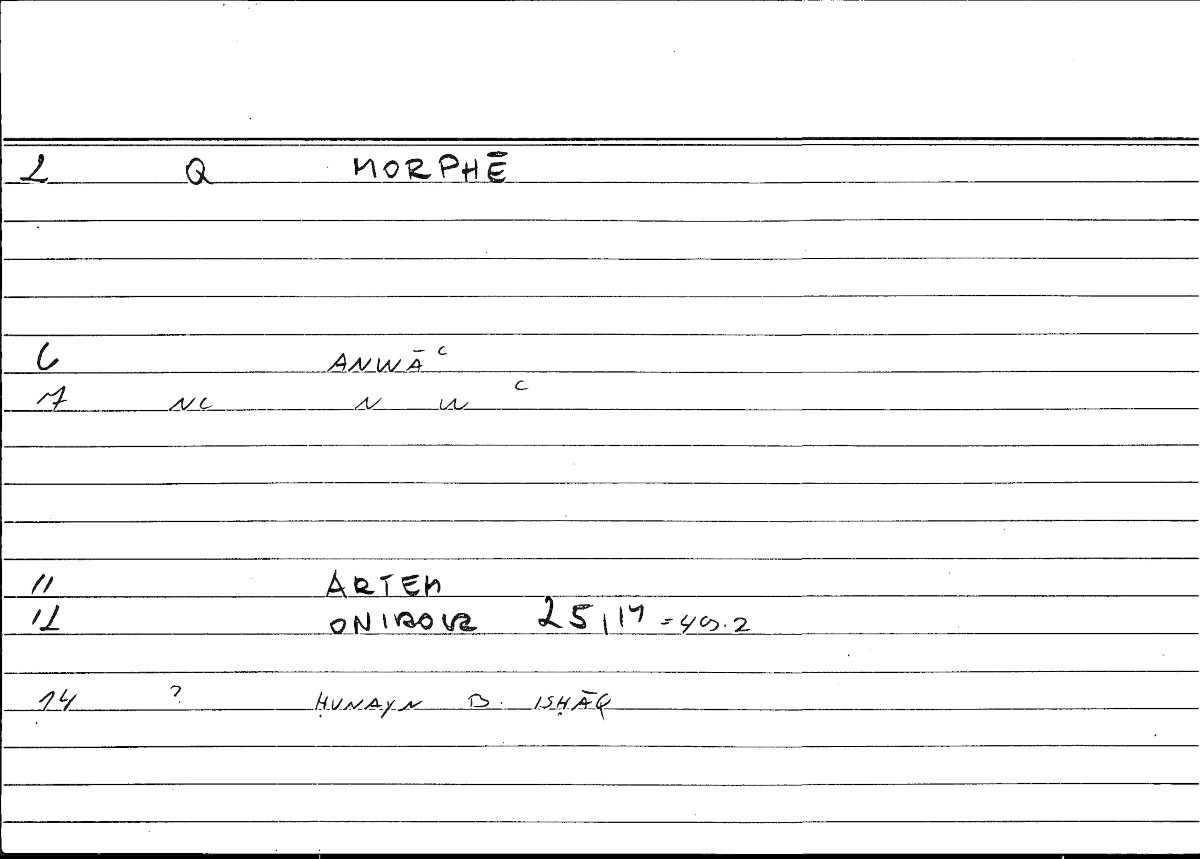 2 Q MORPHĒ
6 ANWĀ ͨ
7 NC N W ͨ
11 ARTEM
12 ONIROCR 25,17 =
14 ? ḤUNAYN B. ISḤĀQ